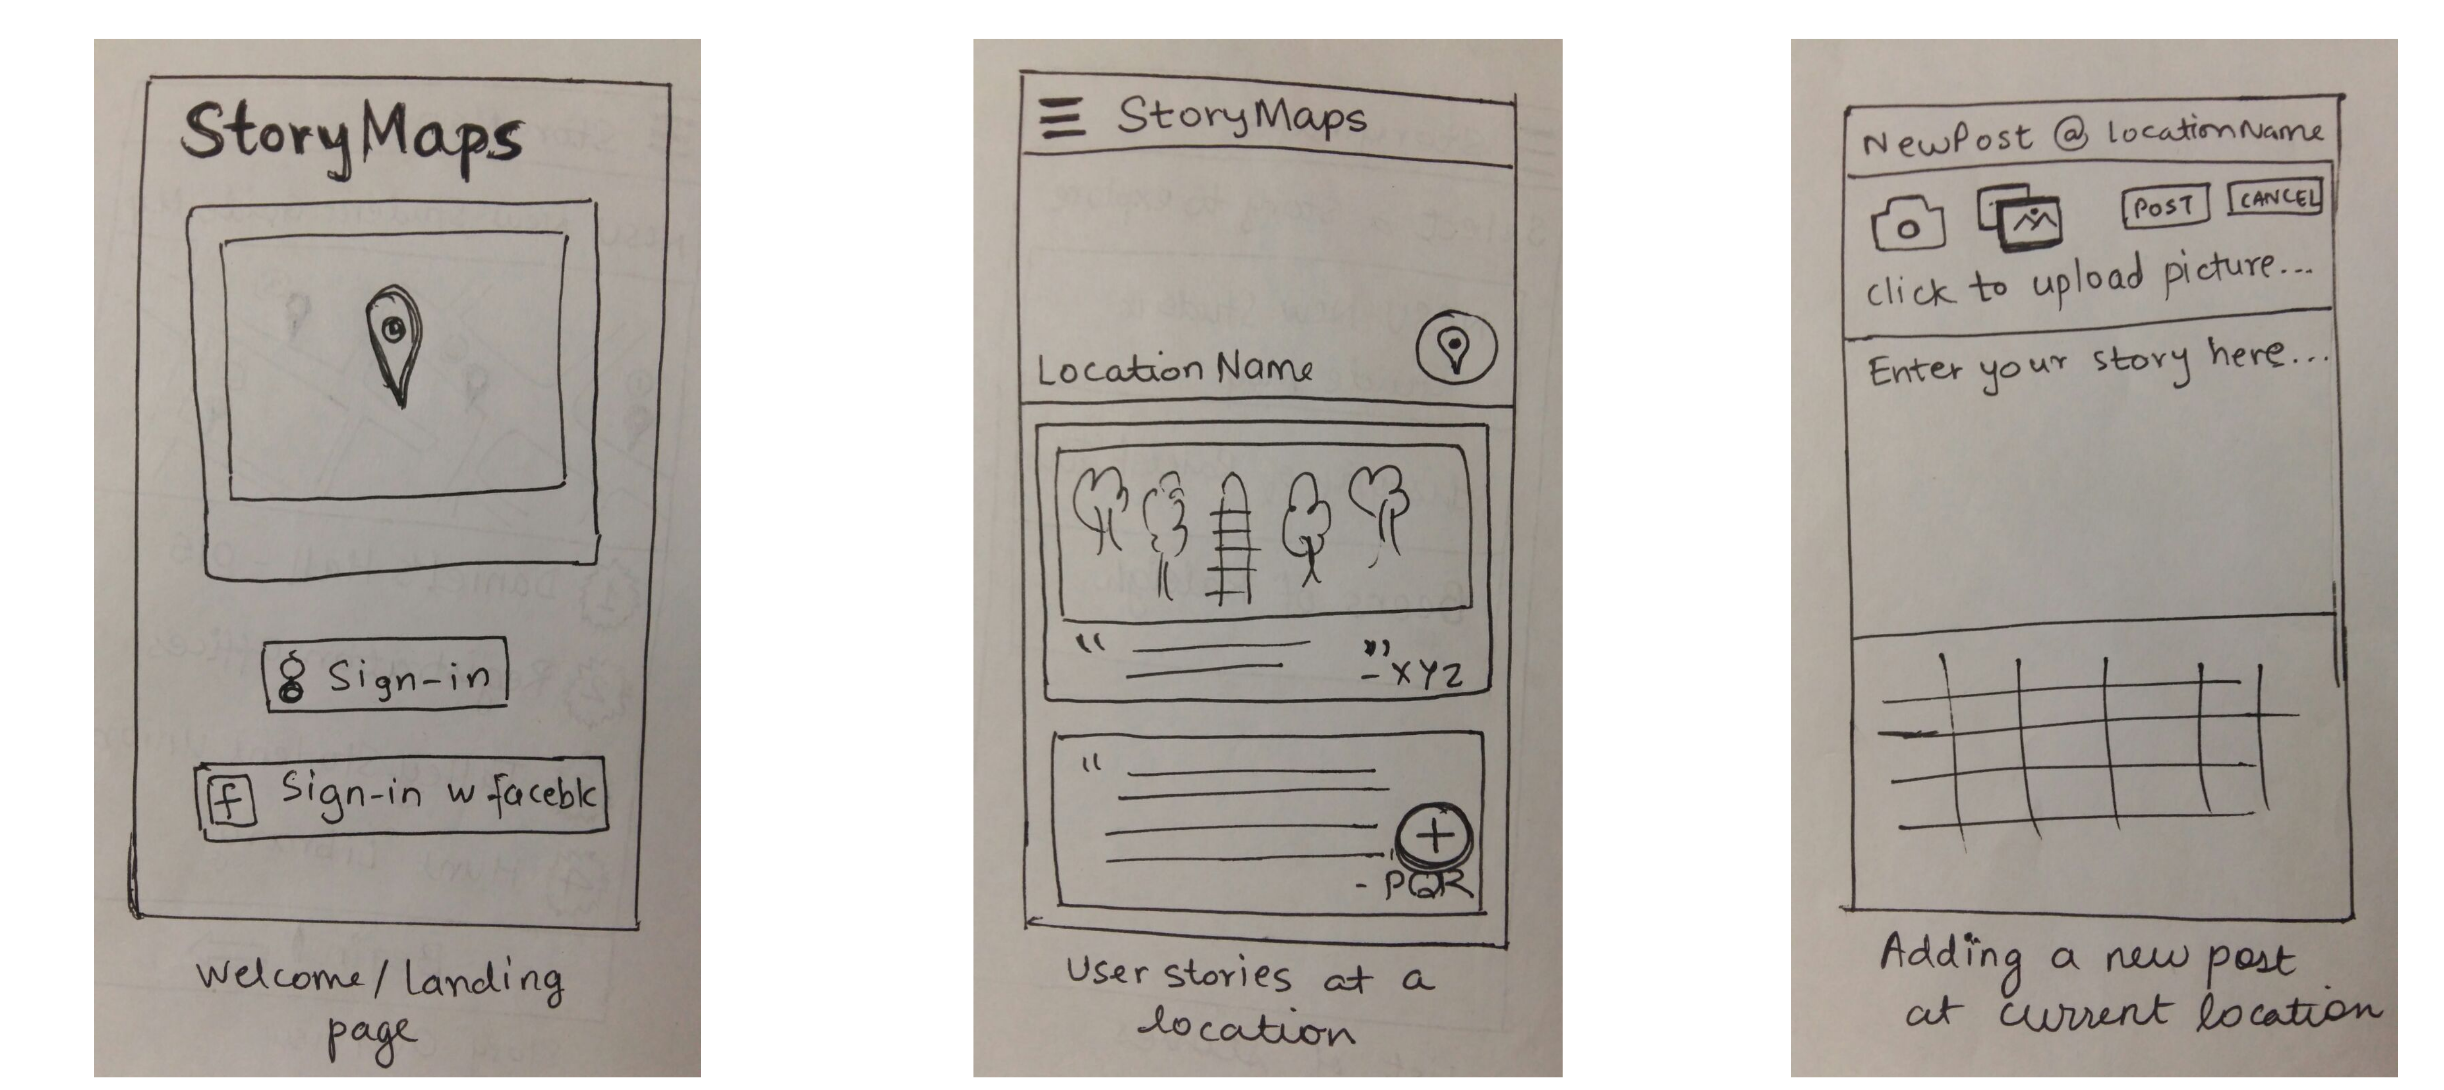 StoryMaps
Sign-in
f Sign-in w facebk
Welcome/landing
page
StoryMaps
Location Name
“ ”
- XYZ
“
- PQR
User stories at a
location
NewPost @ locationName
POST CANCEL
click to upload picture...
Enter your story here...
Adding a new post
at current location